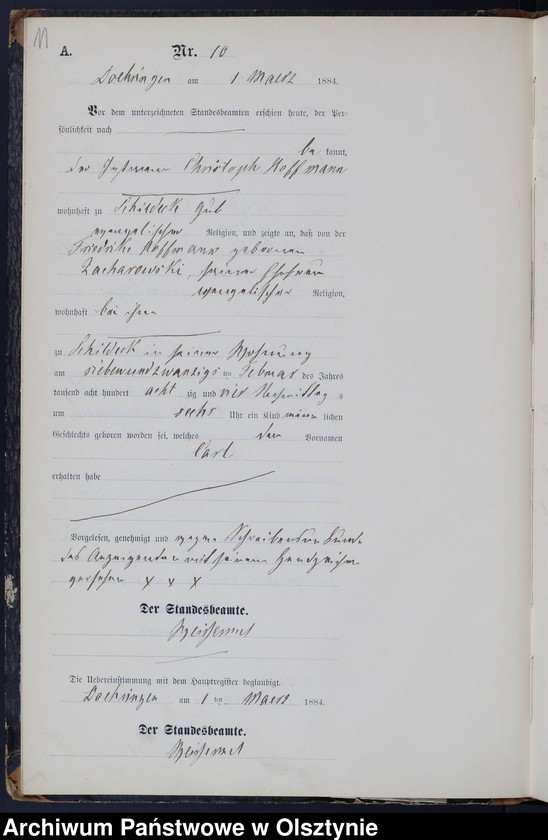 11
A.
Nr. 10
Doehringen am 1 Maerz 1884.
Vor dem unterzeichneten Standesbeamten erschien heute, der Per-
sönlichkeit nach
be kannt,
der Instmann Christoph Hoffmann
wohnhaft zu Schildeck Gut
evangelischer Religion, und zeigte an, daß von der
Friedrike Hoffmann geborenen
Zacharowski, seiner Ehefrau
evangelischer Religion,
wohnhaft bei ihm
zu Schildeck in seiner Wohnung
am siebenundzwanzigs ten Februar des Jahres
tausend acht hundert acht zig und vier Nachmittag s
um sechs Uhr ein Kind männ lichen
Geschlechts geboren worden sei, welches den Vornamen
Carl
erhalten habe
Vorgelesen, genehmigt und wegen Schreibensunkunde
des Anzeigenden mit seinem Handzeichen
versehen x x x
Der Standesbeamte.
Die Uebereinstimmung mit dem Hauptregister beglaubigt.
Doehringen am 1 ten Maerz 1884.
Der Standesbeamte.
Archiwum Państwowe w Olsztynie